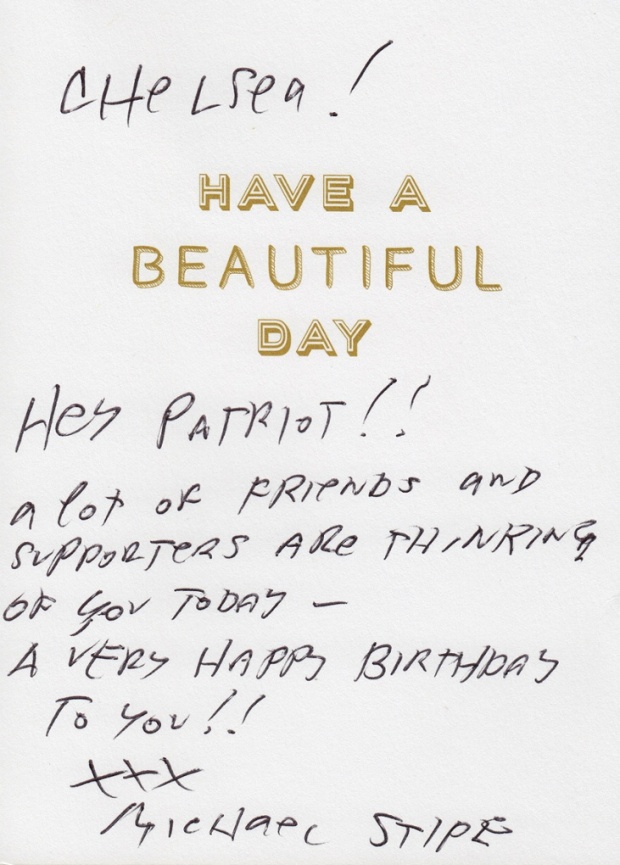 CHeLSea!
HAVE A
BEAUTIFUL
DAY
Hey PATRIOT!!
a lot of FRIeNDS anD
SUPPORTERS ARe THINKING
OF you TODAY —
A VERY HAPPY BIRTHDAY
To you!!
XXX
MicHaeL STIPE